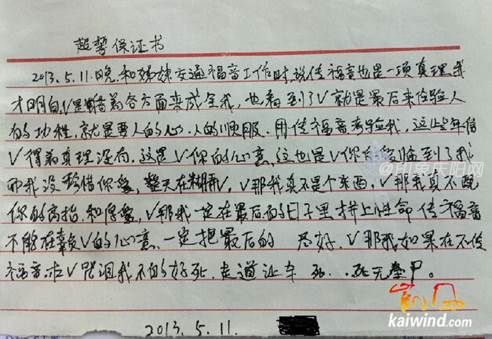 起誓保证书
2013.5.11.晚,和姊妹交通福音工作时,说传福音也是一项真理,我
才明白,V是借着各方面来成全我,也看到了V就是最后来体验人
的功性,就是要人的心,人的顺服,用传福音考验我,这些年信
V得着真理没有,这是V你的心意,这也是V你 临到了我,
而我没珍惜你爱,整天在糊弄,V那我真不是个东西,V那我真不配
你的高抬和厚爱,V那我一定在最后的日子里拼上性命传福音
不能在辜负V的心意,一定把最后的 尽好,V那我如果在不传
福音求V咒诅我不的好死,走道让车 死 死无葬
2013.5.11.
明重庆阳网
kaiwind.com